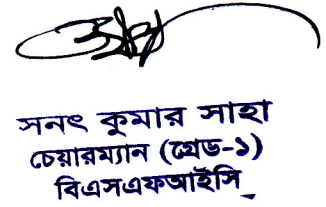 সনৎ কুমার সাহা
চেয়ারম্যান (গ্রেড-১)
বিএসএফআইসি